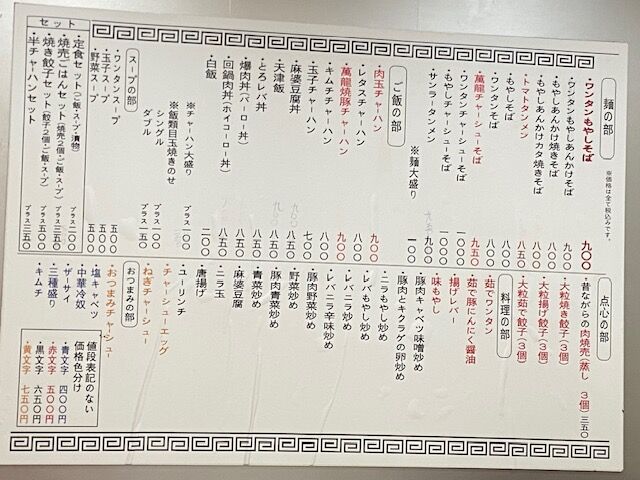 麺の部
※価格は全て税込みです。
・ワンタンもやしそば 九〇〇
・ワンタンもやしあんかけそば 九〇〇
・もやしあんかけ焼きそば 八〇〇
・もやしあんかけカタ焼きそば 八〇〇
・トマトタンメン 八五〇
・もやしそば
・ワンタンそば
・萬龍チャーシューそば 九五〇
・ワンタンチャーシューそば
・もやしチャーシューそば
・サンラータンメン 九〇〇
※麺大盛り 一〇〇
ご飯の部
・肉玉チャーハン 九〇〇
・レタスチャーハン 八〇〇
・萬龍焼豚チャーハン 九〇〇
・キムチチャーハン 八〇〇
・玉子チャーハン 七〇〇
・麻婆豆腐丼 八五〇
・天津飯 八五〇
・とろレバ丼 八五〇
・爆肉丼(バーロー丼) 八五〇
・回鍋肉丼(ホイコーロー丼) 八五〇
・白飯 二〇〇
※チャーハン大盛り プラス一〇〇
※飯類目玉焼きのせ
シングル
ダブル プラス一五〇
スープの部
・ワンタンスープ 五〇〇
・玉子スープ 五〇〇
・野菜スープ 五〇〇
セット
・定食セット(ご飯・スープ・漬物) プラス二〇〇
・焼売ごはんセット(焼売2個・ご飯・スープ) プラス三五〇
・焼き餃子セット(餃子2個ご飯・スープ) プラス五〇〇
・半チャーハンセット プラス三五〇
点心の部
・昔ながらの肉焼売(蒸し 3個) 三五〇
・大粒焼き餃子(3個)
・大粒揚げ餃子(3個)
・大粒茹で餃子(3個)
料理の部
・茹でワンタン
・茹で豚にんにく醤油
・揚げレバー
・味もやし
・豚肉キャベツ味噌炒め
・豚肉とキクラゲの卵炒め
・ニラもやし炒め
・レバもやし炒め
・レバニラ炒め
・レバニラ辛味炒め
・豚肉野菜炒め
・野菜炒め
・豚肉青菜炒め
・青菜炒め
・麻婆豆腐
・ニラ玉
・唐揚げ
・ユーリンチ
・チャーシューエッグ
・ねぎチャーシュー
おつまみの部
・おつまみチャーシュー
・塩キャベツ
・中華冷奴
・ザーサイ
・三種盛り
・キムチ
値段表記のない
価格色分け
・青文字 四〇〇円
・赤文字 五〇〇円
・黒文字 六五〇円
・黄文字 七五〇円